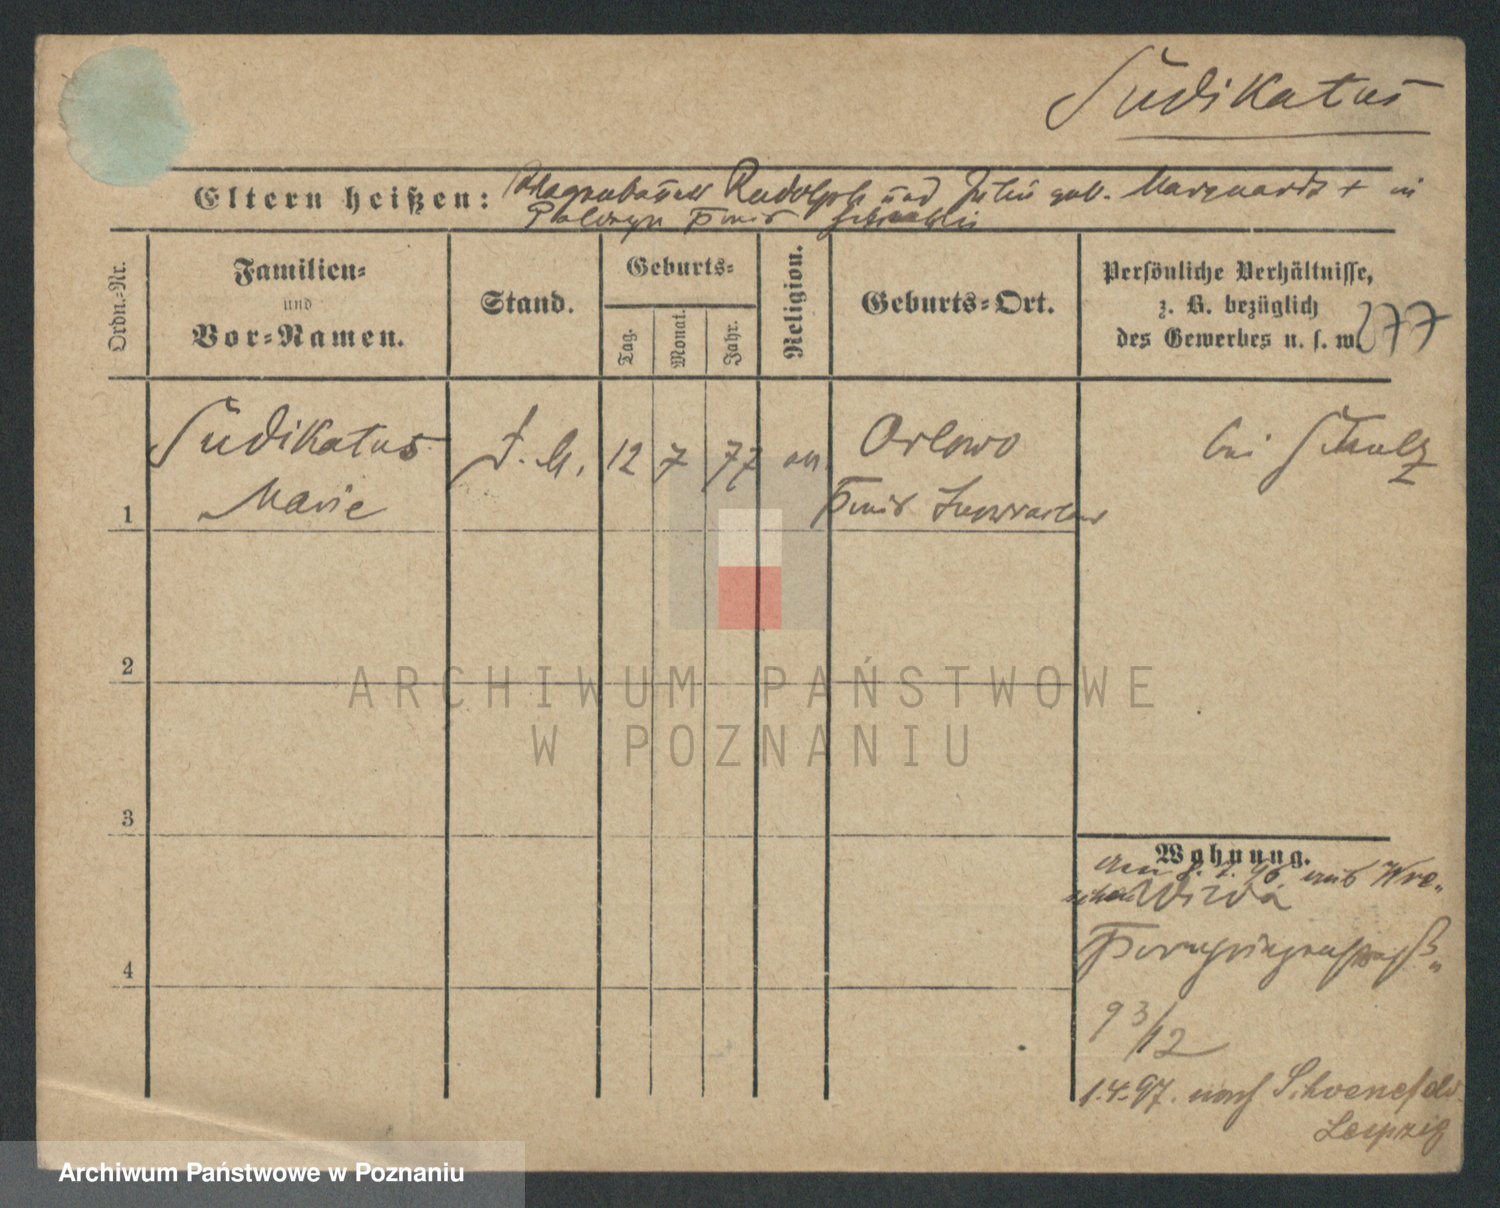 Sudikatus
Eltern heißen: Rudolph und Julie geb. Marquardt + in
Kreis
Ordn.-Nr.
Familien-
und
Vor-Namen.
Stand.
Geburts-
Tag.
Monat.
Jahr.
Religion.
Geburts-Ort.
Persönliche Verhältnisse,
z. B. bezüglich
des Gewerbes u. s. w.
277
1
Sudikatus
Marie
d. M.
12
7
77
ev.
Orlowo
Kreis Inowrazlaw
bei Schulz
2
3
4
Wohnung.
aus Wre-
schen Wilda
93/12
1.4.97. nach Schoenefeld
Leipzig
ARCHIWUM PAŃSTWOWE
W POZNANIU
Archiwum Państwowe w Poznaniu